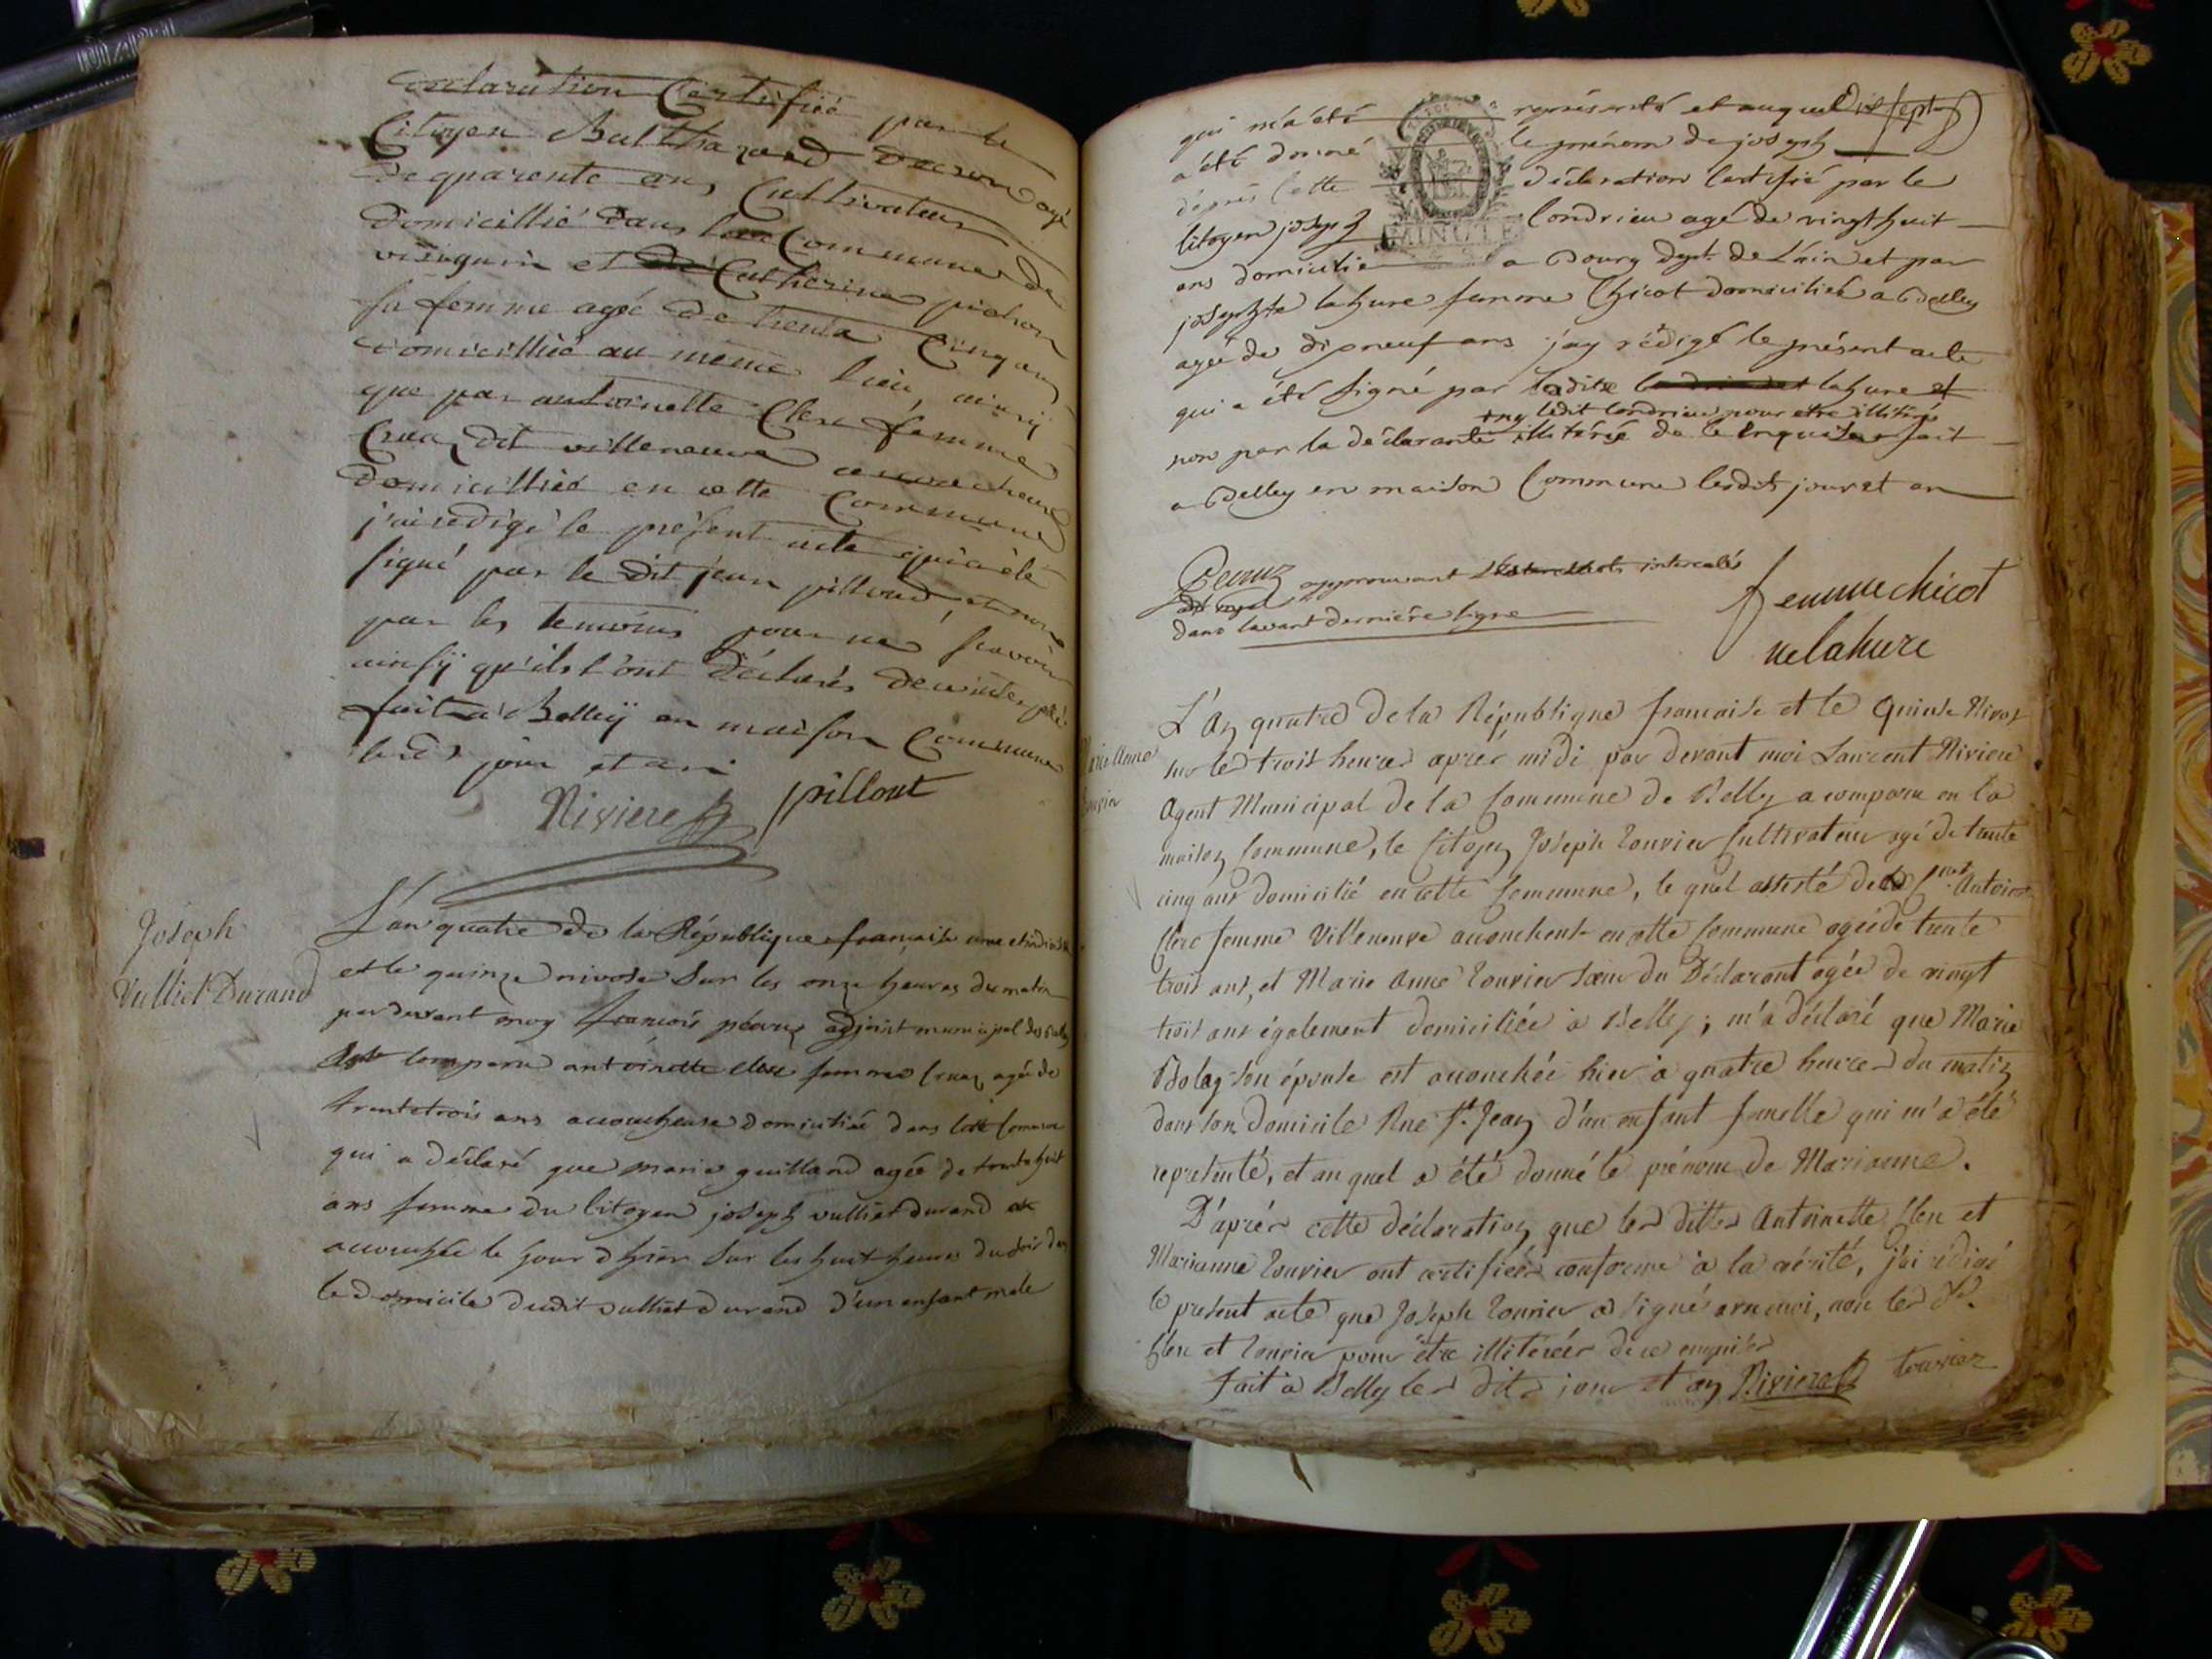 declaration Certifiée par le
Citoyen Balthazard agé
de quarente ans Cultivateur
domicillié dans la Commune de
et Catherine pichon
sa femme agée de trente Cinq ans
domicilliée au même lieu, ainsij
que par antoinette Clerc femme
Cruaz dit villeneuve accoucheuse
domicilliée en cette Commune
j'ai redigé le présent acte qui a été
signé par le dit jean pilloud, et non
par les temoins pour ne scavoir
ainsÿ qu'ils l'ont déclarés de ce interpelé
fait a Belleÿ en maison Commune
lesdt jour et an
Riviere pillout
Joseph
Vulliet Durand
L'an quatre de la République française une et indivisible
et le quinze nivose sur les onze heures du matin
par devant moy francois peçouz adjoint municipal de Belley
est comparu antoinette clerc femme Cruaz agée de
trentetrois ans accoucheuse domiciliée dans cette Commune
qui a déclaré que marie guilland agée de trente huit
ans femme du citoyen joseph vulliet durand est
accouchée le jour d'hier sur les huit heures du soir dans
le domicile dudit vulliet durand d'un enfant male
qui m'a été représenté et auquel Dix sept
a été donné le prénom de joseph
daprés cette déclaration certifié par le
citoyen joseph Condrieu agé de vingt huit
MINUTE
ans domicilié a Bourg dept. de L'ain et par
josephte lahure femme Chicot domiciliée a Belley
agée de dixneuf ans j'ay rédigé le présent acte
qui a été signé par ladite lahure et
ny ledit Condrieu pour etre illitéré
non par la déclarante illitérée de ce enquise fait
a Belley en maison Commune lesdits jour et an
approuvant intercalés
dans lavant derniére ligne
femme chicot
née lahure
Marie Anne
L'An quatre de la République francaise et le Quinze Nivos
sur les trois heures aprés midi par devant moi Laurent Riviere
Agent Municipal de la Commune de Belley a comparu en la
maison Commune, le Citoyen Joseph Tournier Cultivateur agé de trente
cinq ans domicilié en cette Commune, le quel assisté de Antoinette
Clerc femme Villeneuve accoucheuse en cette Commune agée de trente
trois ans, et Marie Anne Tournier sœur du Déclarant agée de vingt
trois ans également domiciliée à Belley; m'a déclaré que Marie
son épouse est accouchée hier à quatre heures du matin
dans son domicile Rue St. Jean d'un enfant femelle qui m'a été
representé, et au quel a été donné le prénom de Marianne.
D'aprés cette déclaration que les dittes Antoinette Clerc et
Marianne Tournier ont certifiée conforme à la vérité, j'ai rédigé
le present acte que Joseph Tournier a signé avec moi, non les de.
Clerc et Tournier pour être illiterées de ce enquises
Fait à Belley les dits jour et an Riviere